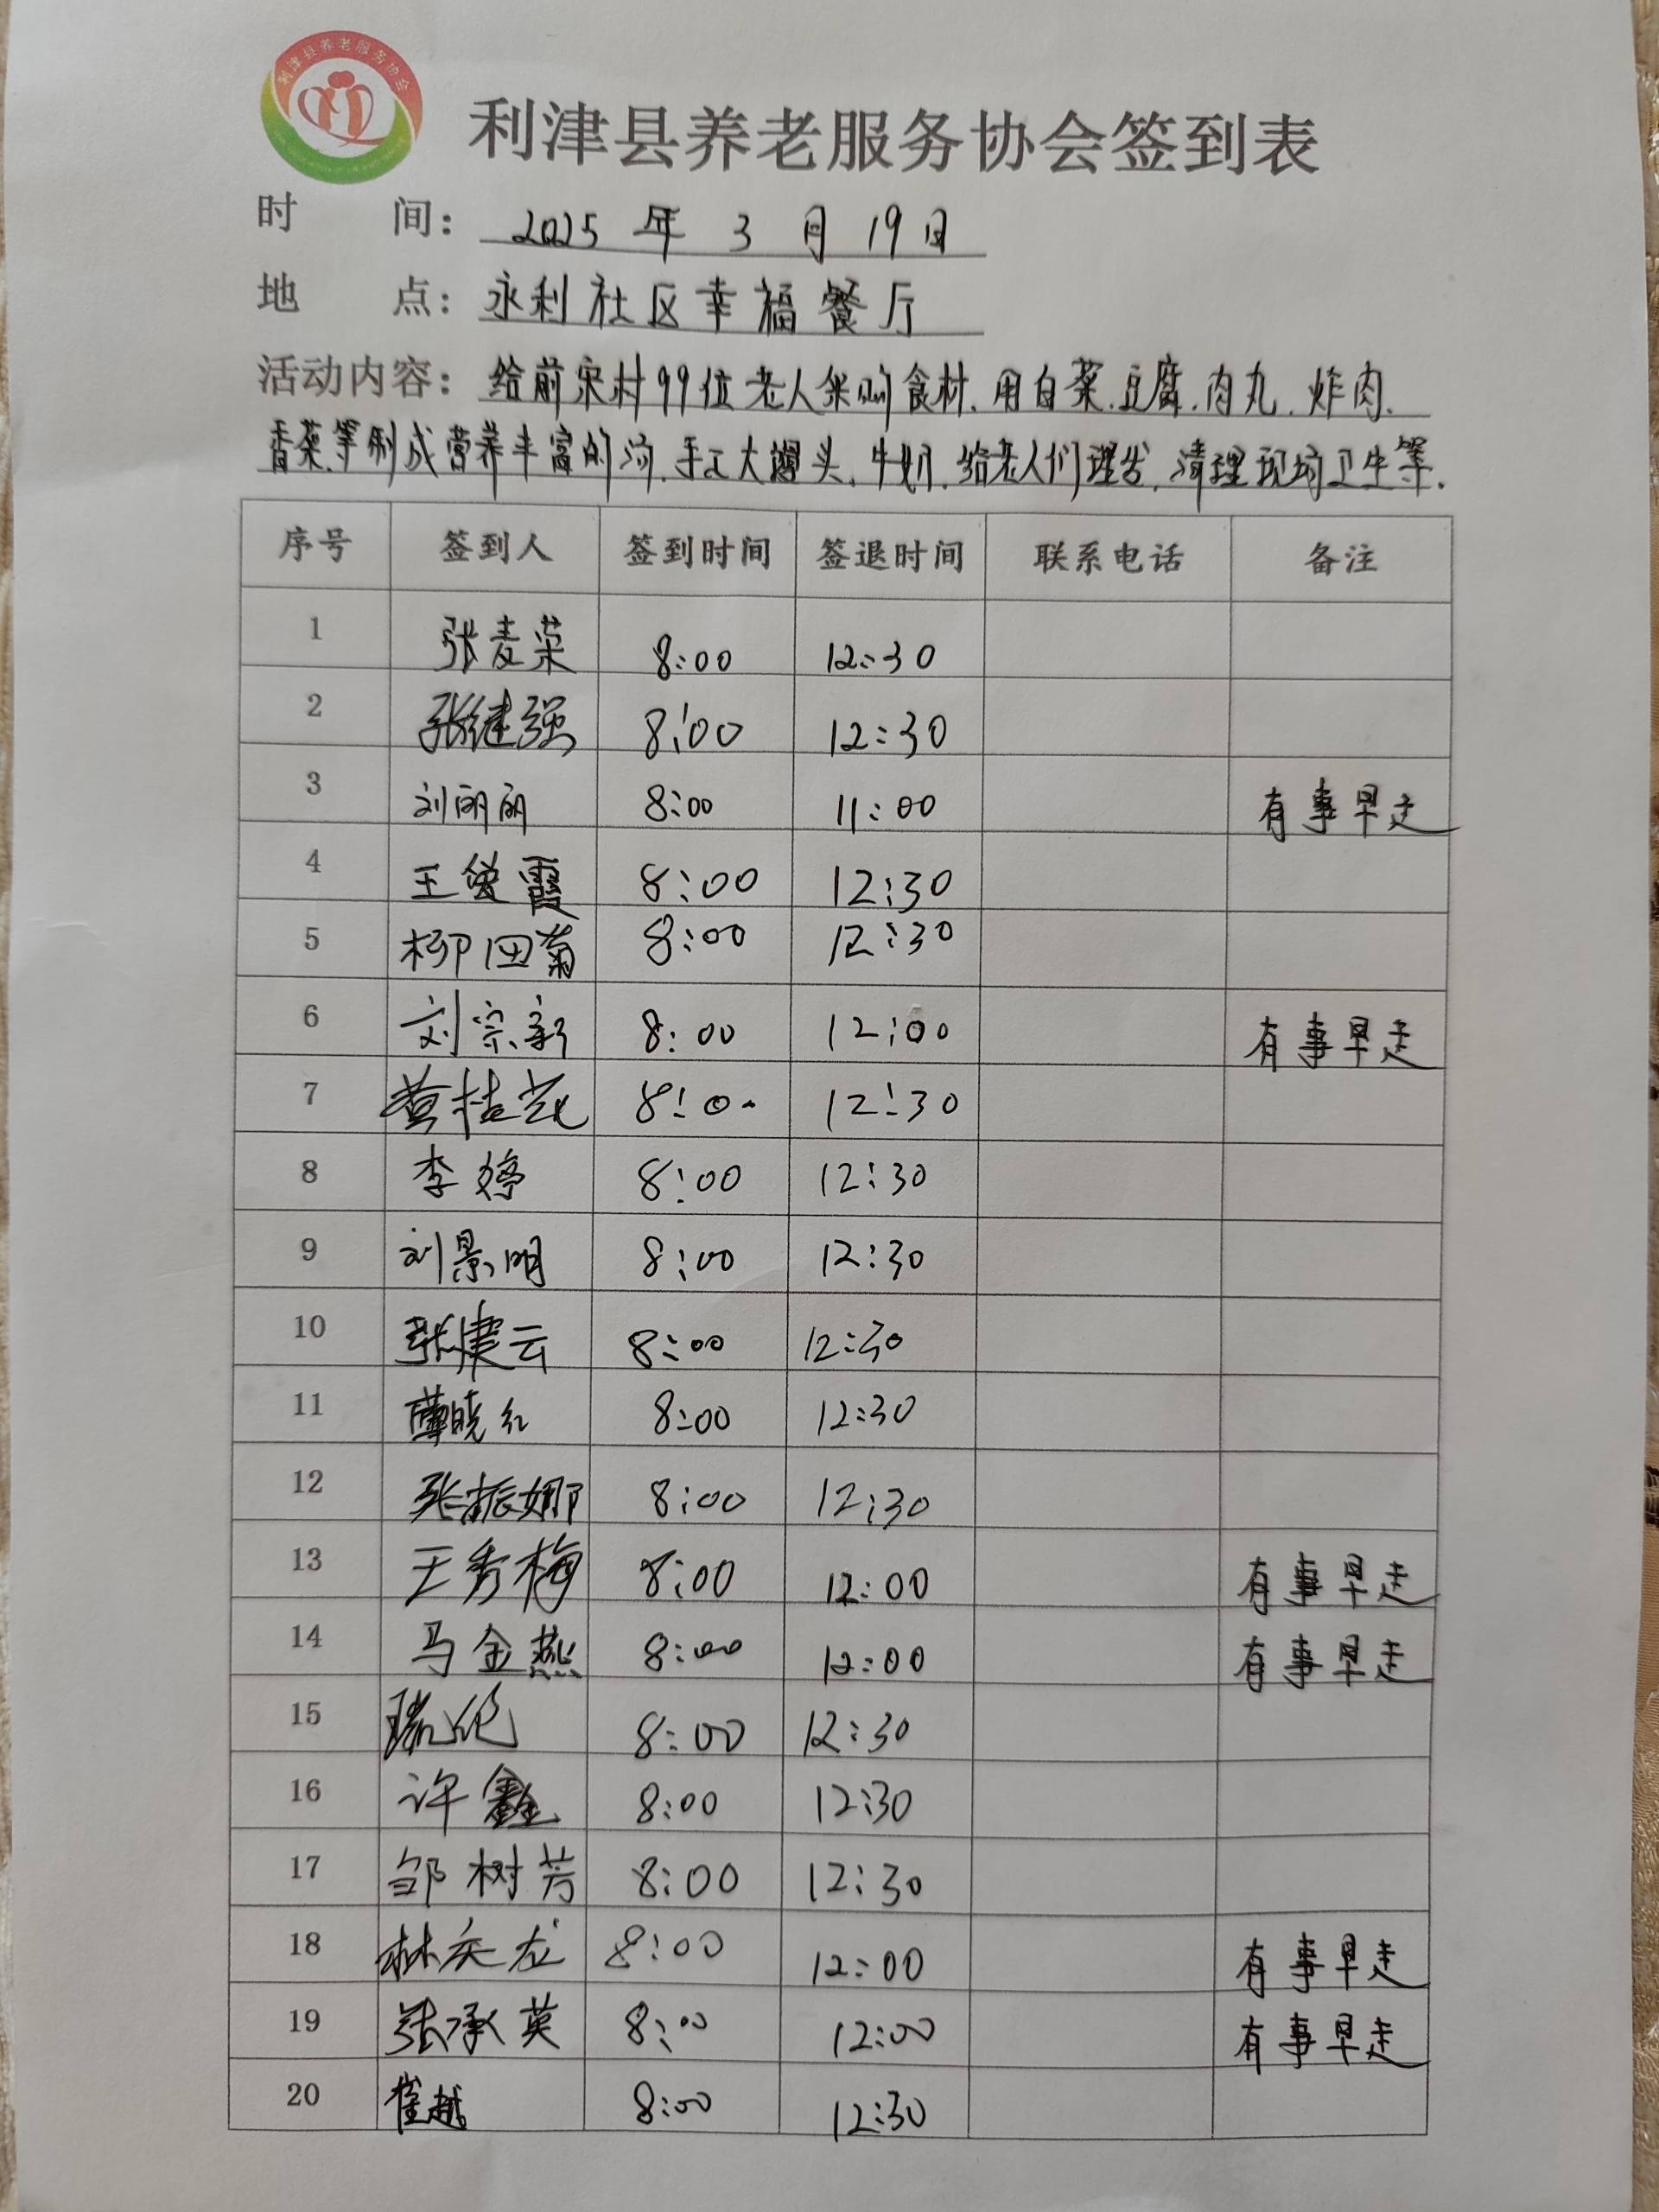 利津县养老服务协会
利津县养老服务协会签到表
时 间: 2025 年 3 月 19 日
地 点: 永利社区幸福餐厅
活动内容: 给前宋村99位老人采购食材.用白菜.豆腐.肉丸.炸肉.
香菜.等制成营养丰富的汤.手工大馒头.牛奶.给老人们理发.清理现场卫生等.
序号 签到人 签到时间 签退时间 联系电话 备注
1 张麦荣 8:00 12:30
2 张继强 8:00 12:30
3 刘丽丽 8:00 11:00 有事早走
4 王俊霞 8:00 12:30
5 柳田菊 8:00 12:30
6 刘宗新 8:00 12:00 有事早走
7 黄桂花 8:00 12:30
8 李婷 8:00 12:30
9 刘景明 8:00 12:30
10 张建云 8:00 12:30
11 薄晓红 8:00 12:30
12 张振娜 8:00 12:30
13 王秀梅 8:00 12:00 有事早走
14 马金燕 8:00 12:00 有事早走
15 8:00 12:30
16 许鑫 8:00 12:30
17 邹树芳 8:00 12:30
18 林庆龙 8:00 12:00 有事早走
19 张承英 8:00 12:00 有事早走
20 崔越 8:00 12:30